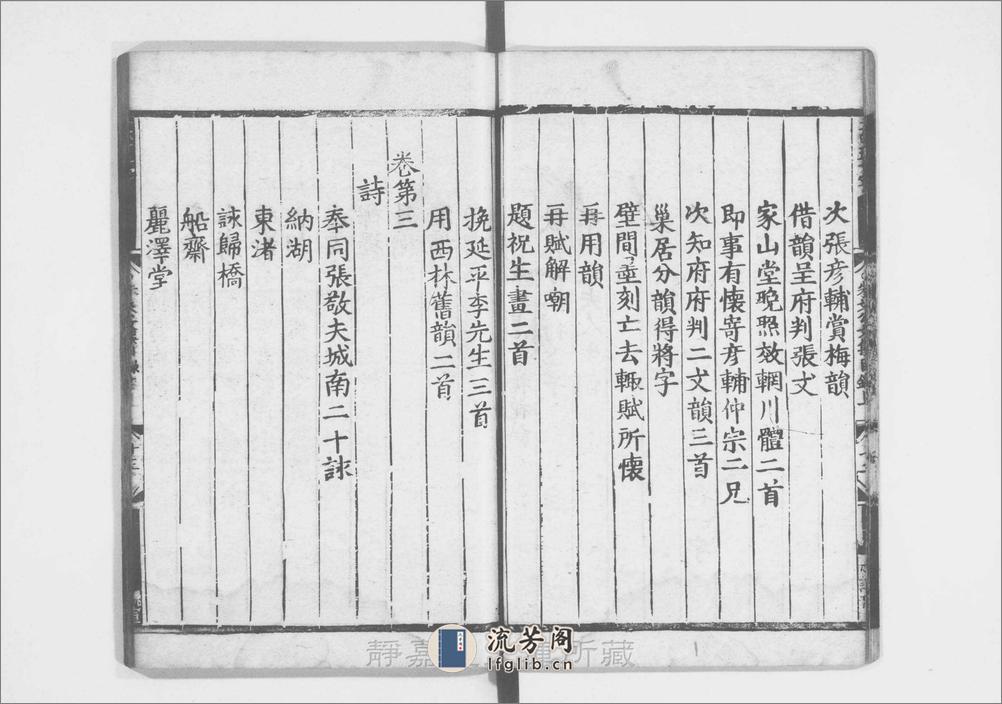 次張彥輔賞梅韻
借韻呈府判張丈
家山堂晚照效輞川體二首
即事有懷寄彥輔仲宗二兄
次知府府判二丈韻三首
巢居分韻得將字
壁間重刻亡去輙賦所懷
再用韻
再賦解嘲
題祝生畫二首
挽延平李先生三首
用西林舊韻二首
卷第三
詩
奉同張敬夫城南二十詠
納湖
東渚
詠歸橋
船齋
麗澤堂
靜嘉 所藏
流芳阁
lfglib.cn